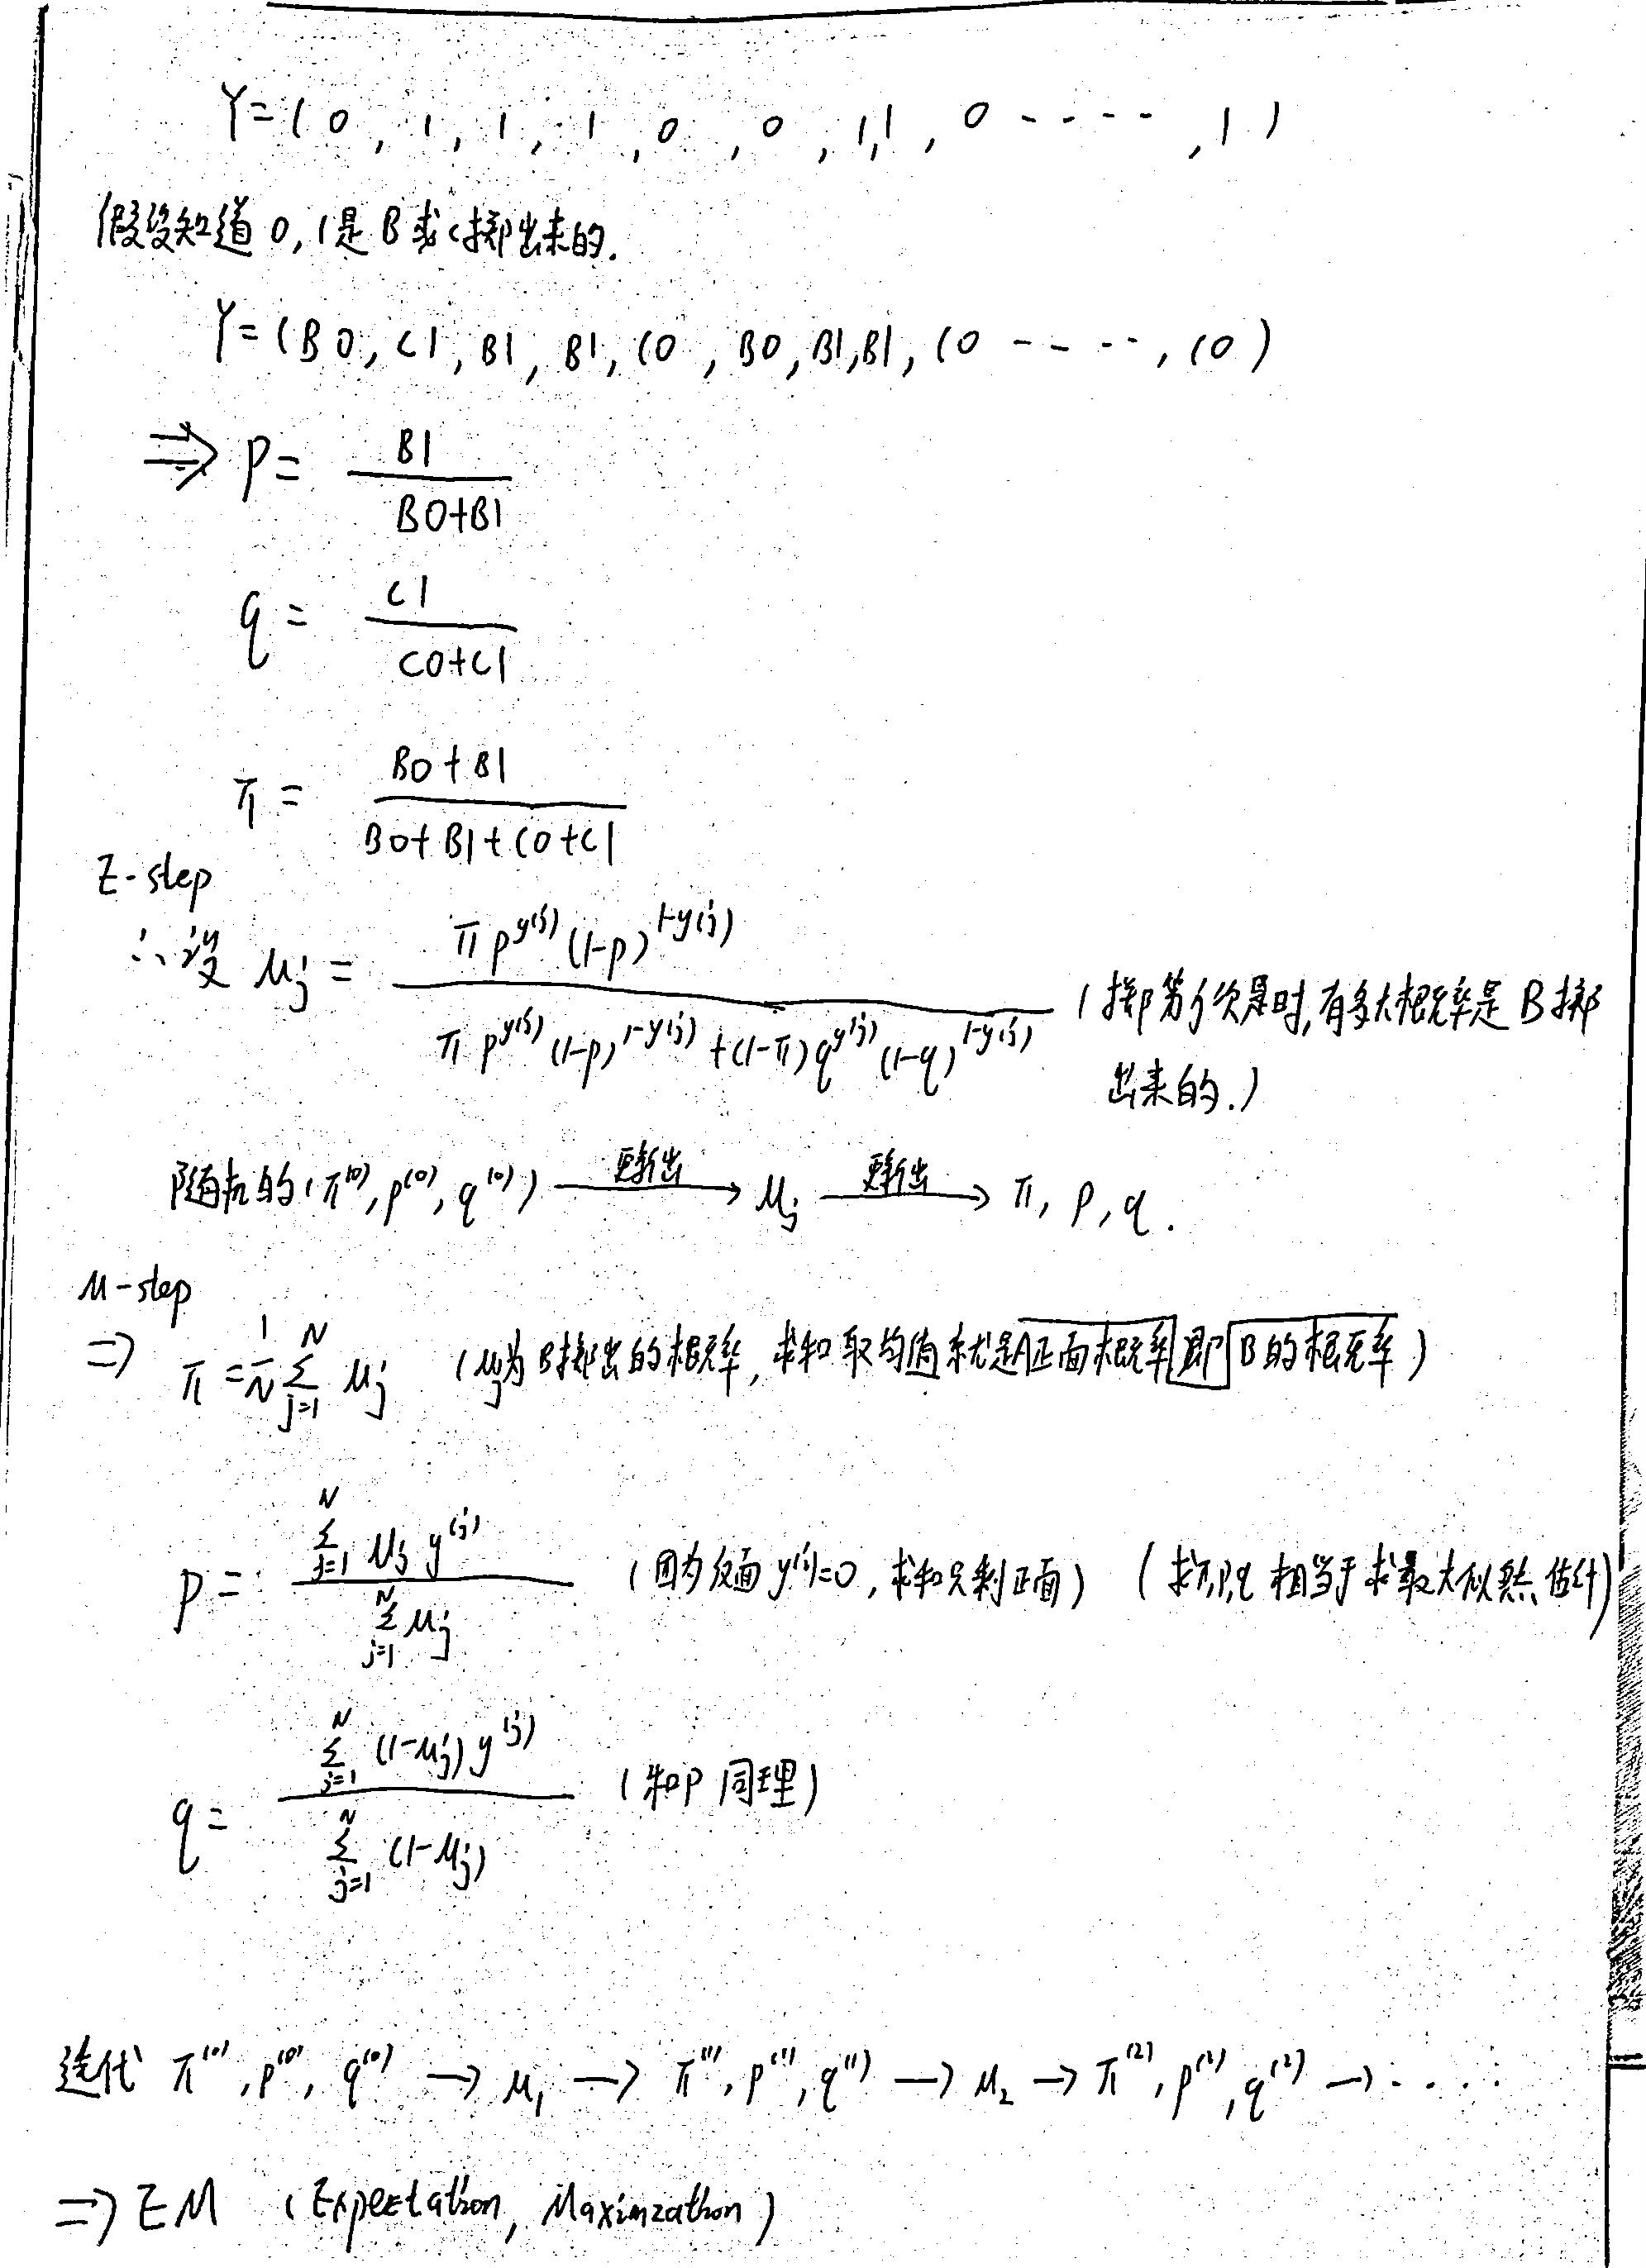 Y=(0,1,1,1,0,0,1,1,0----,1)
假设知道0,1是B或C掷出来的.
Y=(B0,C1,B1,B1,C0,B0,B1,B1,C0----,C0)
⇒ p= B1/(B0+B1)
q= C1/(C0+C1)
π= (B0+B1)/(B0+B1+C0+C1)
E-step
∴设 μj = π p^y(j) (1-p)^1-y(j) / (π p^y(j) (1-p)^1-y(j) +(1-π) q^y(j) (1-q)^1-y(j)) (掷第j次是时,有多大概率是B掷
出来的.)
随机的(π^(0),p^(0),q^(0)) —更新出→ μj —更新出→ π,p,q.
M-step
⇒ π=1/N ∑_{j=1}^N μj (μj为B掷出的概率,求和取均值就是A正面概率即B的概率)
p= ∑_{j=1}^N μj y^(j) / ∑_{j=1}^N μj (因为反面y^(j)=0,求和只剩正面) (求π,p,q相当于求最大似然估计)
q= ∑_{j=1}^N (1-μj) y^(j) / ∑_{j=1}^N (1-μj) (和p同理)
迭代 π^(0),p^(0),q^(0) → μ1 → π^(1),p^(1),q^(1) → μ2 → π^(2),p^(2),q^(2) →.....
⇒ EM (Expectation, Maximzation)